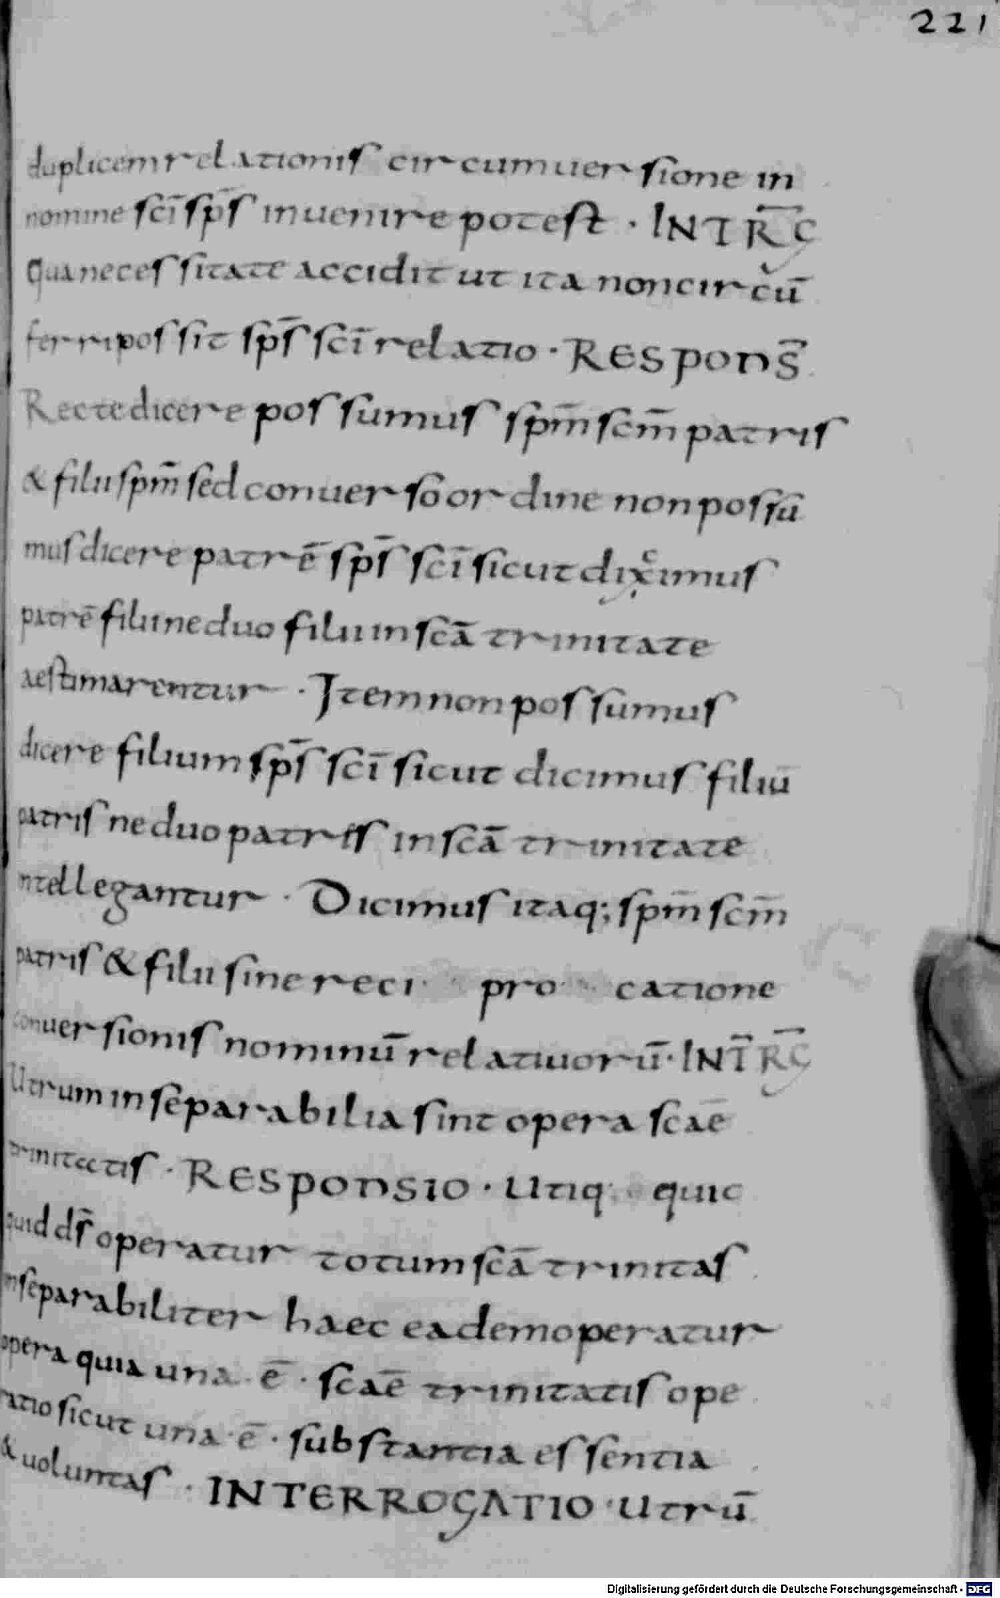 221
duplicem relationis circumuersione in
nomine sc̄i sp̄s inuenire potest · INTR̄G
Qua necessitate accidit ut ita non circū
ferri possit sp̄s sc̄i relatio · RESPONS̄
Recte dicere possumus sp̄m sc̄m patris
& filii sp̄m sed conuerso ordine non possū
mus dicere patrē sp̄s sc̄i sicut diximus
patrē filii ne duo filii in scā trinitate
aestimarentur · Item non possumus
dicere filium sp̄s sc̄i sicut dicimus filiū
patris ne duo patres in scā trinitate
intellegantur · Dicimus itaq; sp̄m sc̄m
patris & filii sine reci pro catione
conuersionis nominū relatiuorū · INT̄R̄G
Utrum inseparabilia sint opera scaē
trinitatis · RESPONSIO · Utiq quic
quid dr̄ operatur totum scā trinitas
inseparabiliter haec eadem operatur
opera quia una · ē · scaē trinitatis ope
ratio sicut una · ē · substantia essentia
& uoluntas · INTERROGATIO · Utrū
Digitalisierung gefördert durch die Deutsche Forschungsgemeinschaft - DFG